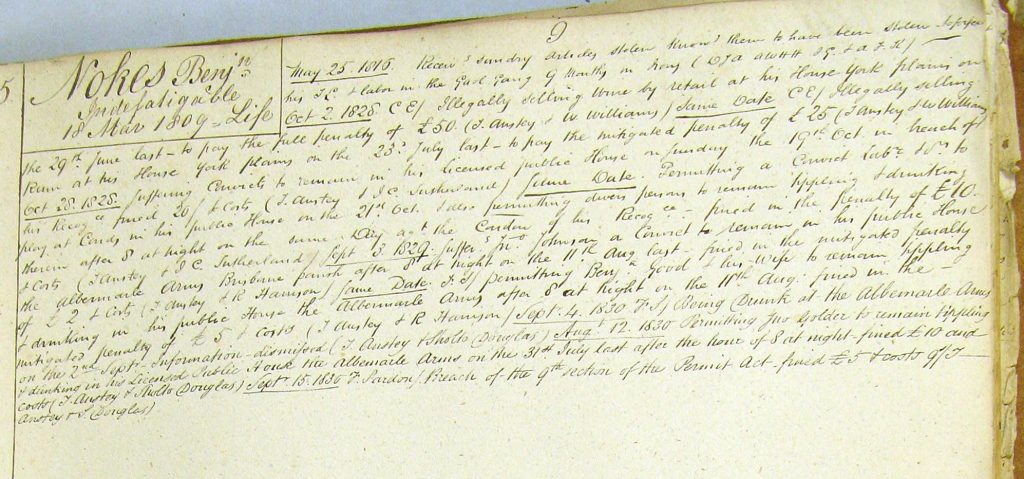 5
9
Nokes Benjn
Indefatigable
18 Mar 1809 - Life
May 25. 1816 Receivg sundry articles stolen knowg them to have been stolen
his T.L. & labor in the Gaol Gang 9 Months in Irons
Oct 2. 1828. C E / Illegally selling Wine by retail at his House York plains on
the 29th June last - to pay the full penalty of £50. (T. Anstey & W Williams) Same Date C E / Illegally selling
Rum at his House York plains on the 23d July last - to pay the mitigated penalty of £25 (T Anstey & W Williams)
Oct 28. 1828. Suffering Convicts to remain in his Licensed public House on Sunday the 19th Oct. in breach of
his Recogce fined 20/ & Costs (T. Anstey & J.C. Sutherland) Same Date. Permitting a Convict to
play at Cards in his public House on the 21st Oct. & also permitting divers persons to remain tippling & drinking
therein after 8 at night on the same Day agt the Condon of his Recogce - fined in the penalty of £10.
& Costs (T Anstey & J.C. Sutherland) Sept 3. 1829. Sufferg Jno Johnson a Convict to remain in his public House
the Albemarle Arms Brisbane parish after 8 at night on the 11th Aug last - fined in the mitigated penalty
of £2 & Costs (T. Anstey & R Harrison) Same Date. F. S / permitting Benjn Good & his Wife to remain tippling
& drinking in his public House the Albemarle Arms after 8 at Night on the 11th Aug: fined in the
mitigated penalty of £5 & costs (T Anstey & R Harrison) Sept. 4. 1830 F. S / Being Drunk at the Albemarle Arms
on the 2nd Septr - Information - dismissed (T. Anstey & Sholto Douglas) Augt 12. 1830 Permitting Jno Golder to remain tippling
& drinking in his Licensed Public House the Albemarle Arms on the 31st July last after the hour of 8 at night - fined £10 and
costs (T. Anstey & Sholto Douglas) Septr 15. 1830 F. Pardon / Breach of the 9th section of the Permit Act - fined £5 & costs
Anstey & S. Douglas)